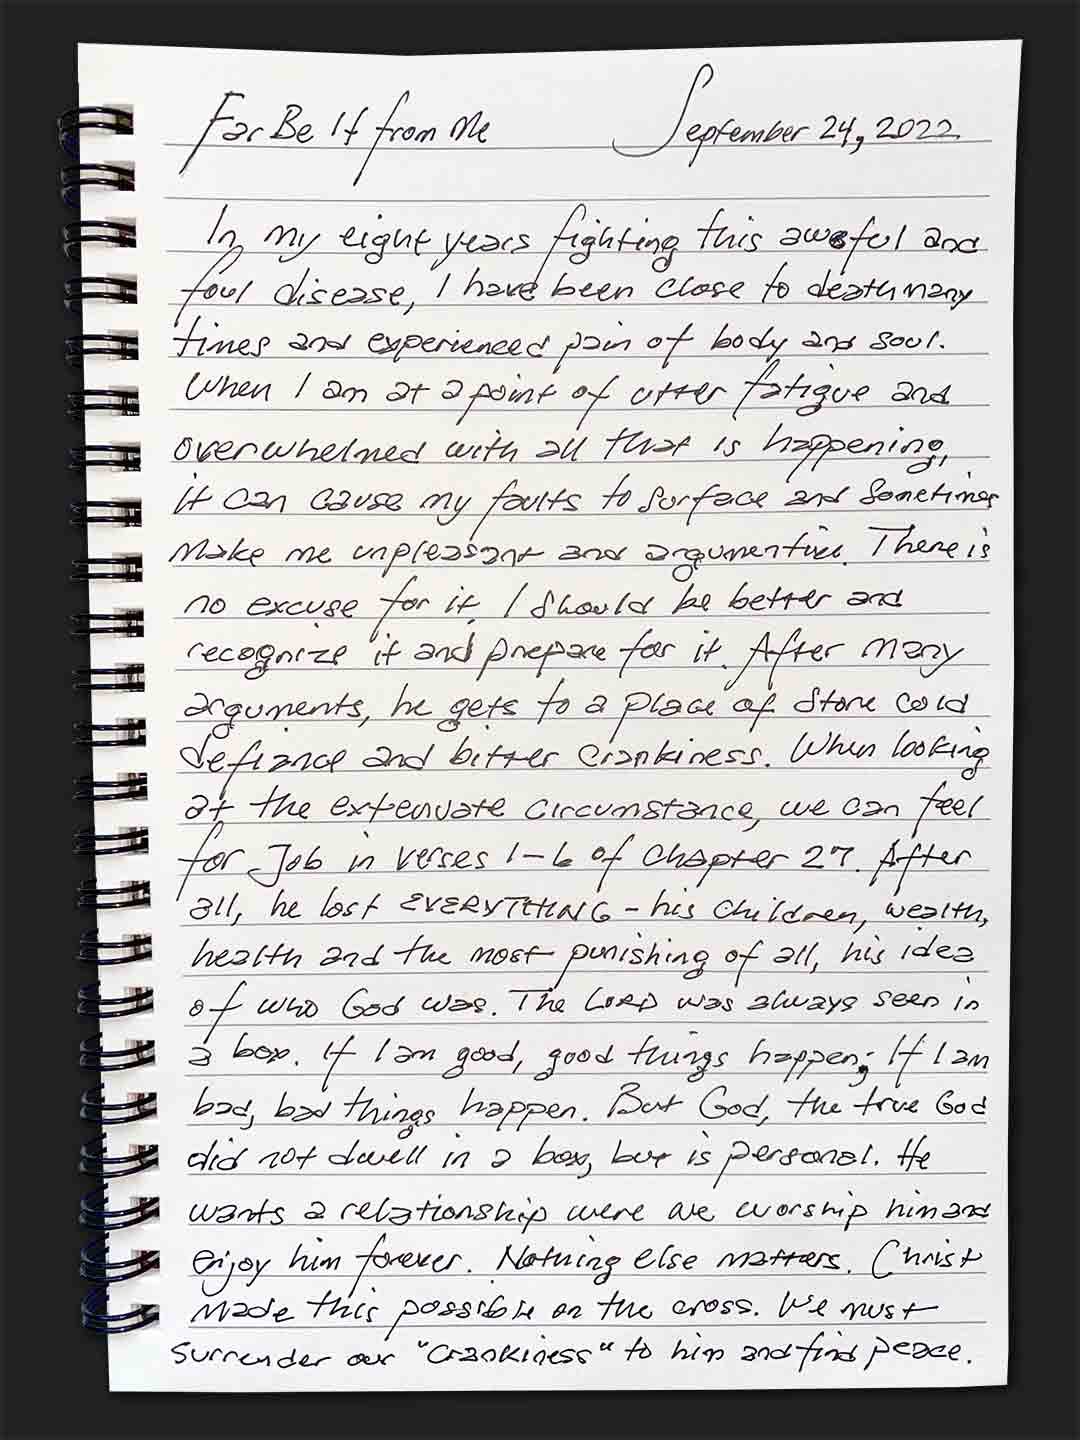 Far Be It from Me September 24, 2022
In my eight years fighting this awful and
foul disease, I have been close to death many
times and experienced pain of body and soul.
When I am at a point of utter fatigue and
overwhelmed with all that is happening,
it can cause my faults to surface and sometimes
make me unpleasant and argumentive. There is
no excuse for it, I should be better and
recognize it and prepare for it. After many
arguments, he gets to a place of stone cold
defiance and bitter crankiness. When looking
at the extenuate circumstance, we can feel
for Job in verses 1-6 of chapter 27. After
all, he lost EVERYTHING - his children, wealth,
health and the most punishing of all, his idea
of who God was. The LORD was always seen in
a box. If I am good, good things happen; If I am
bad, bad things happen. But God, the true God
did not dwell in a box, but is personal. He
wants a relationship were we worship him and
enjoy him forever. Nothing else matters. Christ
made this possible on the cross. We must
surrender our "crankiness" to him and find peace.